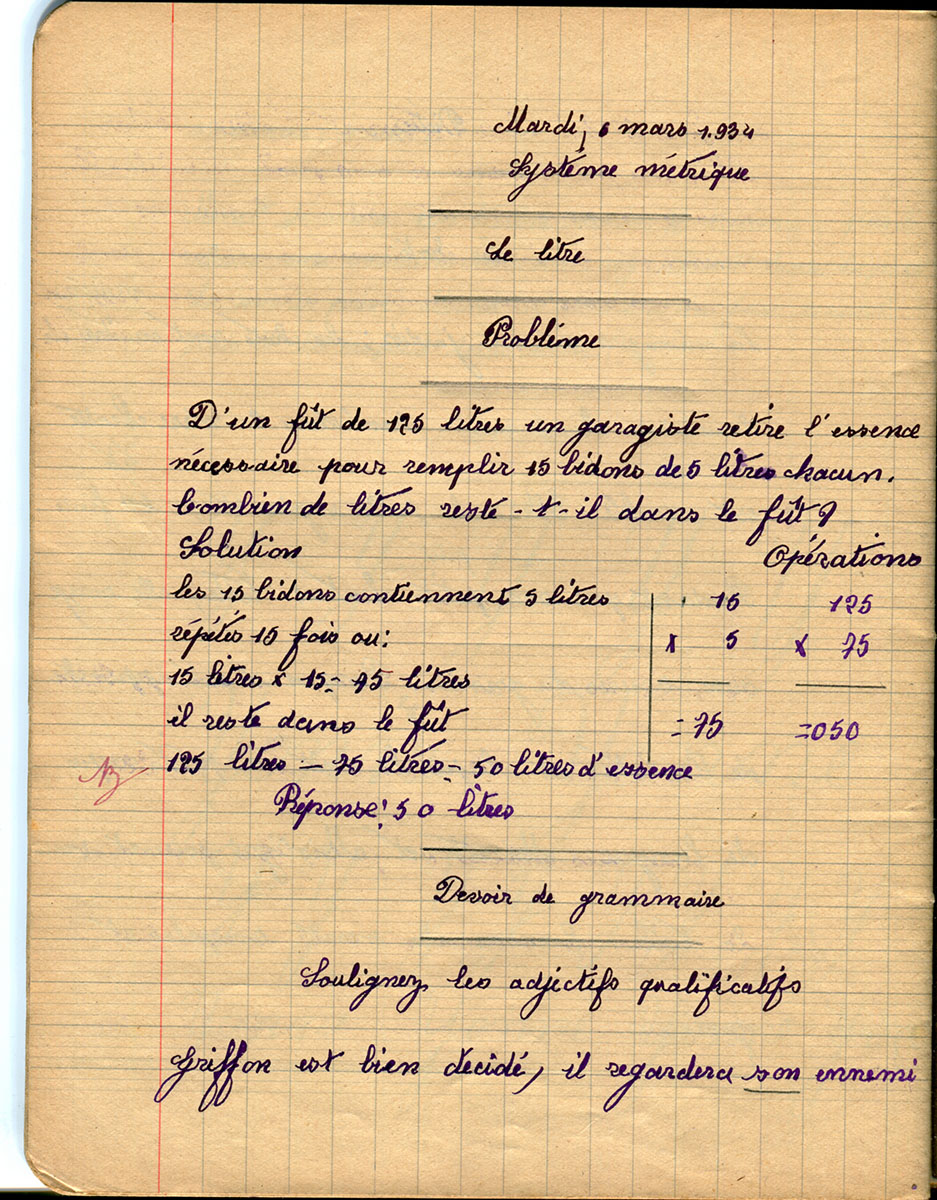 Mardi, 6 mars 1.934
Système métrique
Le litre
Problème
D'un fût de 125 litres un garagiste retire l'essence
nécessaire pour remplir 15 bidons de 5 litres chacun.
Combien de litres reste-t-il dans le fût?
Solution Opérations
les 15 bidons contiennent 5 litres 15 125
répétés 15 fois ou: x 5 x 75
15 litres x 15 = 75 litres
il reste dans le fût = 75 = 050
125 litres — 75 litres = 50 litres d'essence
B
Réponse: 50 litres
Devoir de grammaire
Soulignez les adjectifs qualificatifs
Griffon est bien décidé, il regardera son ennemi